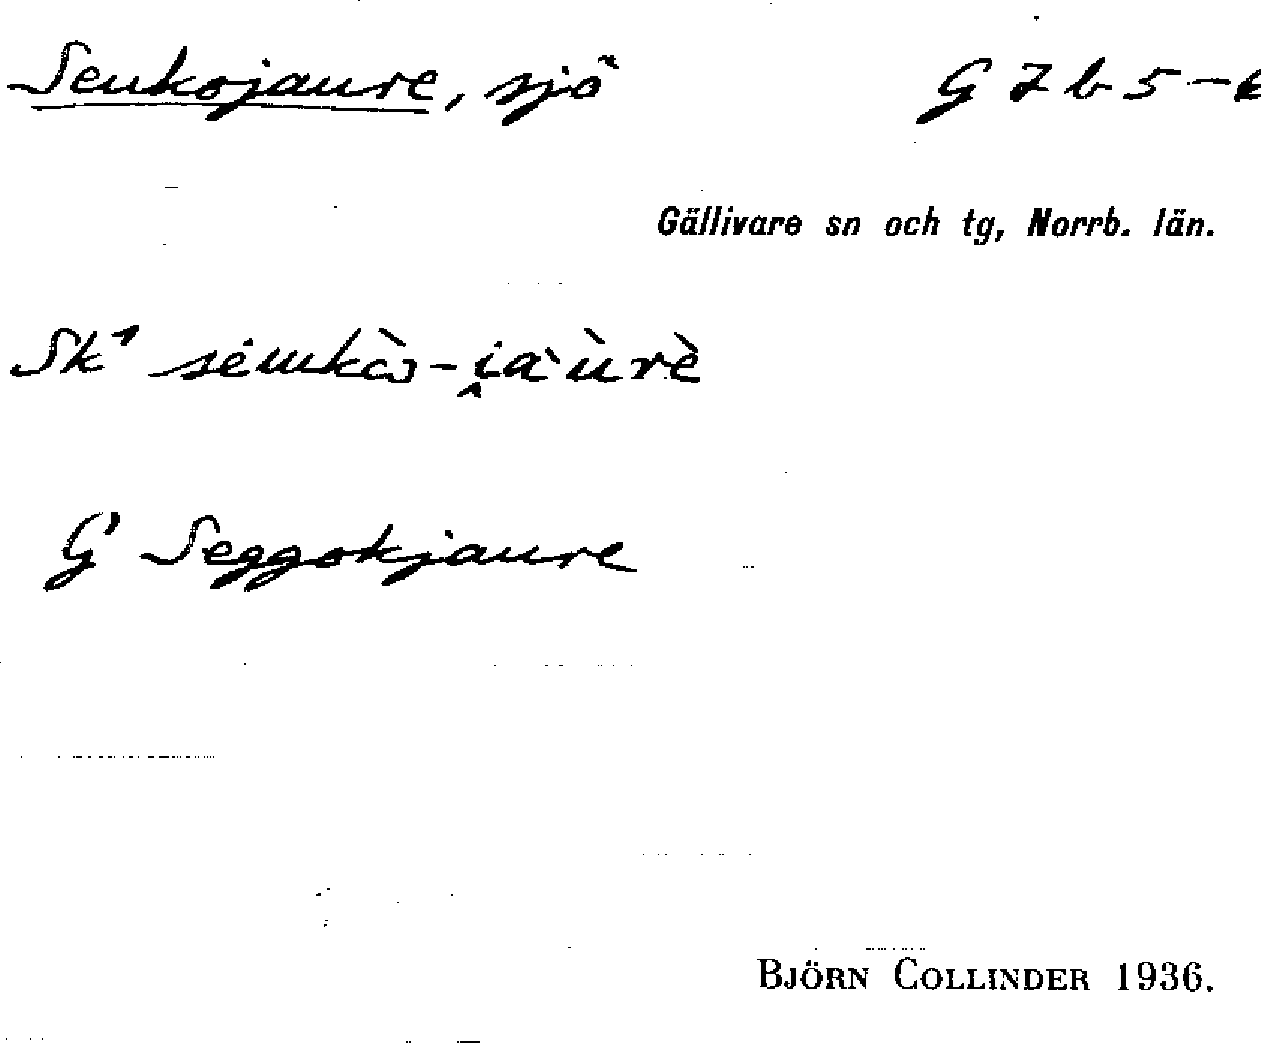 Senkojaure, sjö G 7 b 5-6
Gällivare sn och tg, Norrb. län.
Sk¹
G Seggokjaure
BJÖRN COLLINDER 1936.